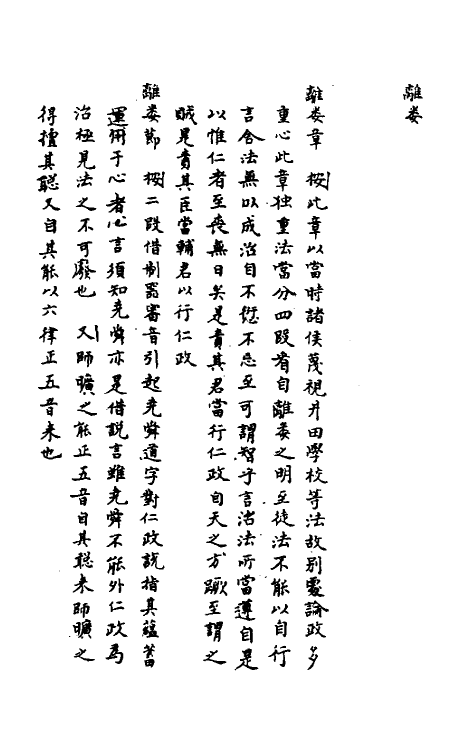 離婁
離婁章　按此章以當時諸侯蔑視井田學校等法故別處論政多
重心此章独重法當分四段看自離婁之明至徒法不能以自行
言舍法無以成治自不愆不忘至可謂智乎言治法所當遵自是
以惟仁者至喪無日矣是責其君當行仁政自天之方蹶至謂之
賊是責其臣當輔君以行仁政
離婁節　按二段借制器審音引起堯舜道字對仁政說指其蘊蓄
運用于心者心言須知堯舜亦是借說言雖堯舜不能外仁政為
治極見法之不可廢也　又師曠之能正五音自其聰來師曠之
得擅其聰又自其能以六律正五音来也